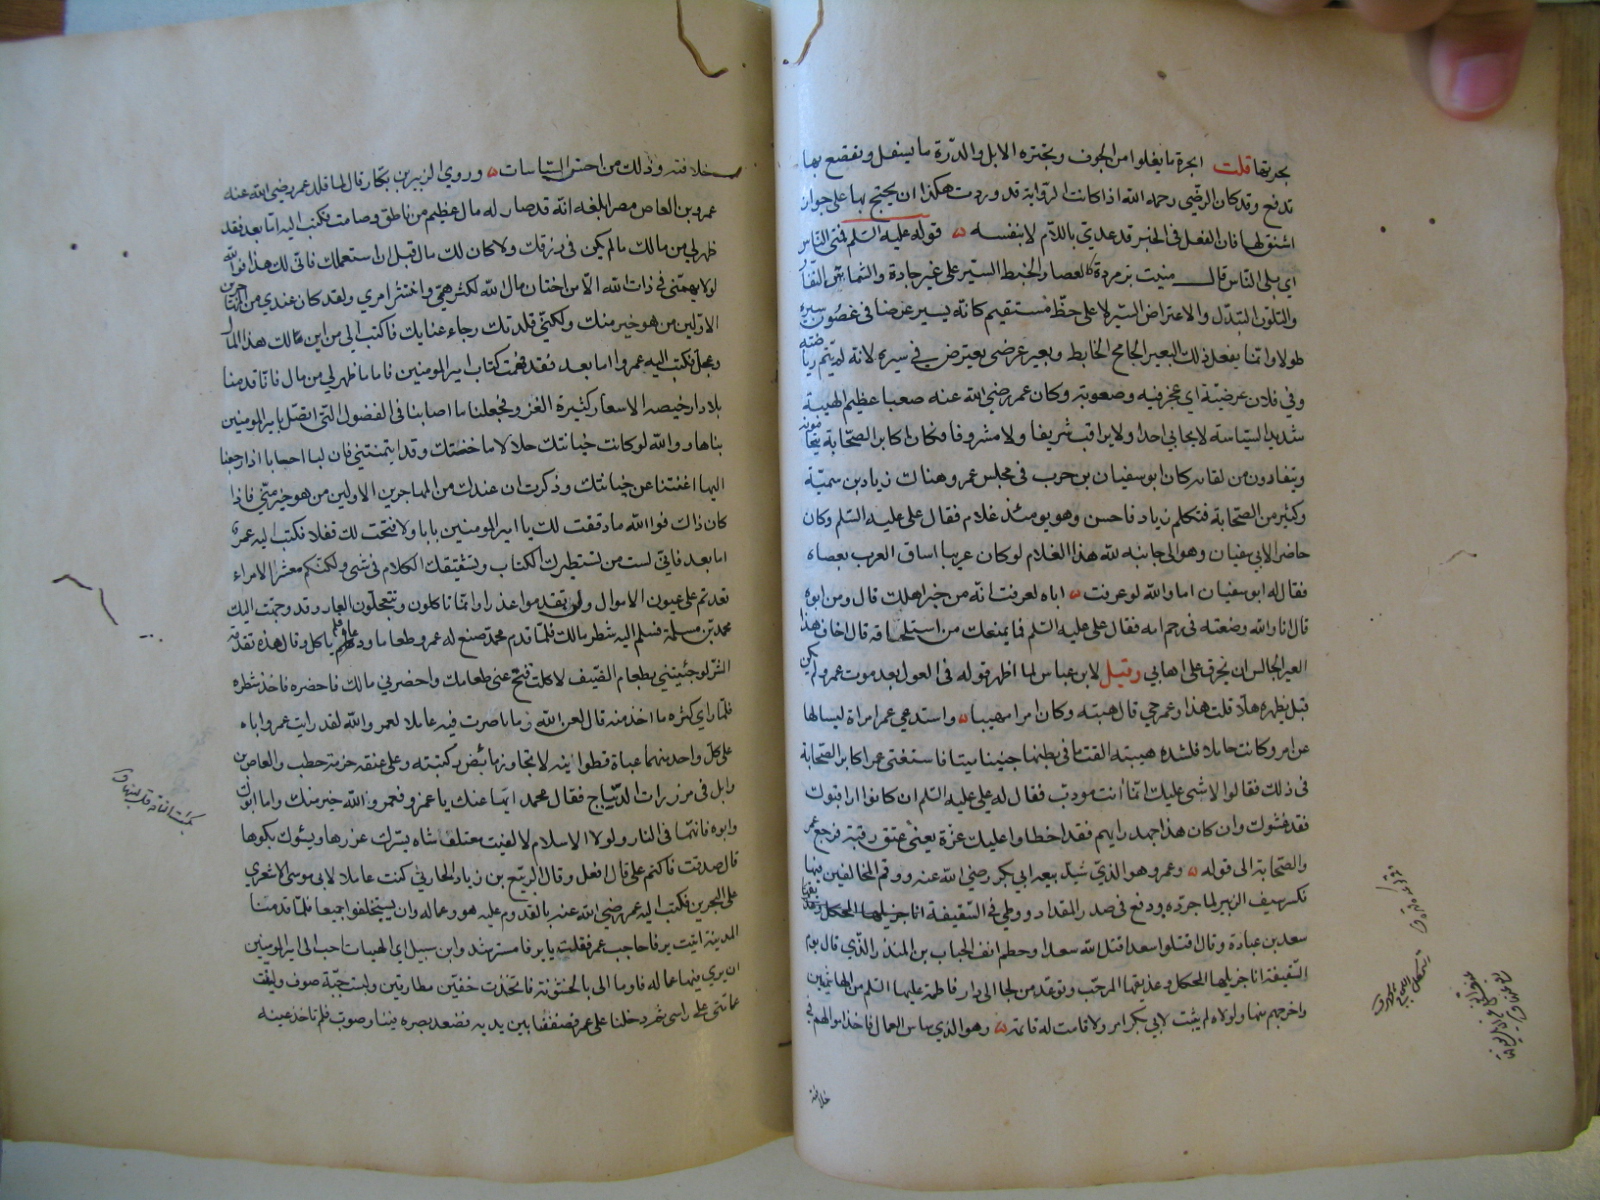 بجرتها قلت الجرة ما يعلوا من الجوف ويجتره الابل والدرة ما يسفل وتقصع بها
تدفع وقد كان الرضي رحمه الله اذا كانت الرواية قد وردت هكذا ان يحتج بها على جواز
اشنق لها فان الفعل في الخبر قد عدي باللام لا بنفسه قوله عليه السلم فمني الناس
اي بلي الناس قال منيت بزمردة كالعصا والخبط السير على غير جادة والشماس النفار
والتلون التبدل والاعتراض السير لا على خط مستقيم كانه يسير عرضا في غضون سيره
طولا وانما يفعل ذلك البعير الجامح الخابط وبعير عرضي يعترض في سيره لانه لم يتم رياضته
وفي فلان عرضية اي عجرفية وصعوبة وكان عمر رضي الله عنه صعبا عظيم الهيبة
شديد السياسة لا يحابي احدا ولا يراقب شريفا ولا مشروفا فكان اكابر الصحابة يتحامونه
ويتفادون من لقائه كان ابو سفيان بن حرب في مجلس عمر وهناك زياد بن سمية
وكثير من الصحابة فتكلم زياد فاحسن وهو يومئذ غلام فقال علي عليه السلم وكان
حاضرا لابي سفيان وهو الى جانبه لله هذا الغلام لو كان عربيا لساق العرب بعصاه
فقال له ابو سفيان اما والله لو عرفت اباه لعرفت انه من خير اهلك قال ومن ابوه
قال انا والله وضعته في رحم امه فقال علي عليه السلم فما يمنعك من استلحاقه قال اخاف هذا
العير الجالس ان يخرق علي اهابي وقيل لابن عباس لما اظهر قوله في العول بعد موت عمر ولم يكن
قبل يظهره هلا قلت هذا وعمر حي قال هبته وكان امرا مهيبا واستدعي عمر امراة ليسالها
عن امر وكانت حاملا فلشدة هيبته القت ما في بطنها جنينا ميتا فاستفتى عمر اكابر الصحابة
في ذلك فقالوا لا شي عليك انما انت مودب فقال له علي عليه السلم ان كانوا راقبوك
فقد غشوك وان كان هذا جهد رايهم فقد اخطاوا عليك غرة يعني عتق رقبة فرجع عمر
والصحابة الى قوله وعمر وهو الذي شيد بيعه ابي بكر رضي الله عنه ووقم المخالفين فيها
فكسر سيف الزبير لما جرده ودفع في صدر المقداد ووطي في السقيفة
سعد بن عبادة وقال اقتلوا سعدا قتل الله سعدا وحطم انف الحباب بن المنذر الذي قال يوم
السقيفة انا جذيلها المحكك وعذيقها المرجب وتوعد من لجا الى دار فاطمة عليها السلم من الهاشميين
واخرجهم منها ولولاه لم يثبت لابي بكر امر ولا قامت له قائمة وهو الذي ساس العمال فاخذ اموالهم في
خلافته
خلافته وذلك من احسن السياسات وروي الزبير بن بكار قال لما قلد عمر رضي الله عنه
عمرو بن العاص مصر بلغه انه قد صار له مال عظيم من ناطق وصامت فكتب اليه اما بعد فقد
ظهر لي من مالك ما لم يكن في رزقك ولا كان لك مال قبل ان استعملك فاني لك هذا فوالله
لو لا يهمني في ذات الله الا من اختان مال الله لكثر همي وانتثر امري ولقد كان عندي من المهاجرين
الاولين من هو خير منك ولكني قلدتك رجاء غنايك فاكتب الي من اين مالك هذا المال
وعجل فكتب اليه عمروا اما بعد فقد فهمت كتاب امير المومنين فاما ما ظهر لي من مال فانا قدمنا
بلادا رخيصة الاسعار كثيرة الغزو فجعلنا ما اصابنا في الفضول التي اتصل بامير المومنين
بناها ووالله لو كانت خيانتك حلالا ما خنتك وقد ايتمنتني فان لنا احسابا اذا رجعنا
اليها اغنتنا عن خيانتك وذكرت ان عندك من المهاجرين الاولين من هو خير مني فاذا
كان ذاك فوالله ما دققت لك يا امير المومنين بابا ولا فتحت لك قفلا فكتب اليه عمر
اما بعد فاني لست من تسطيرك الكتاب وتشقيقك الكلام في شي ولكنكم معشر الامراء
قعدتم على عيون الاموال ولن تقدموا عذرا وانما تاكلون وتتعجلون العار وقد وجهت اليك
محمد بن مسلمة فسلم اليه شطر مالك فلما قدم محمد صنع له عمرو طعاما ودعاه فلم ياكل وقال هذه تقدمة
الشر لو جئتني بطعام الضيف لاكلت فنح عني طعامك واحضر لي مالك فاحضره فاخذ شطره
فلما راي كثرة ما اخذ منه قال لعن الله زمانا صرت فيه عاملا لعمر والله لقد رايت عمر واباه
على كل واحد منهما عباة قطوانية لا تجاوز مابض ركبتيه وعلى عنقه حزمة حطب والعاص بن
وايل في مزررات الديباج فقال محمد ايها عنك يا عمرو فعمر والله خير منك واما ابوك
وابوه فانهما في النار ولولا الاسلام لالفيت معتلفا شاة يسرك غزرها ويسوك بكوها
قال صدقت فاكتم علي قال افعل وقال الربيع بن زياد الحارثي كنت عاملا لابي موسى الاشعري
على البحرين فكتب اليه عمر رضي الله عنه بالقدوم عليه هو وعماله وان يستخلفوا جميعا فلما قدمنا
المدينة اتيت يرفا حاجب عمر فقلت يا يرفا مسترشد وابن سبيل اي الهيئات احب الى امير المومنين
ان يرى فيها عماله فاوما الى بالخشونة فاتخذت خفين مطارقين ولبست جبة صوف ولففت
عمامتي على راسي ثم دخلنا على عمر فصففنا بين يديه فصعد بصره فينا وصوب فلم تاخذ عينه